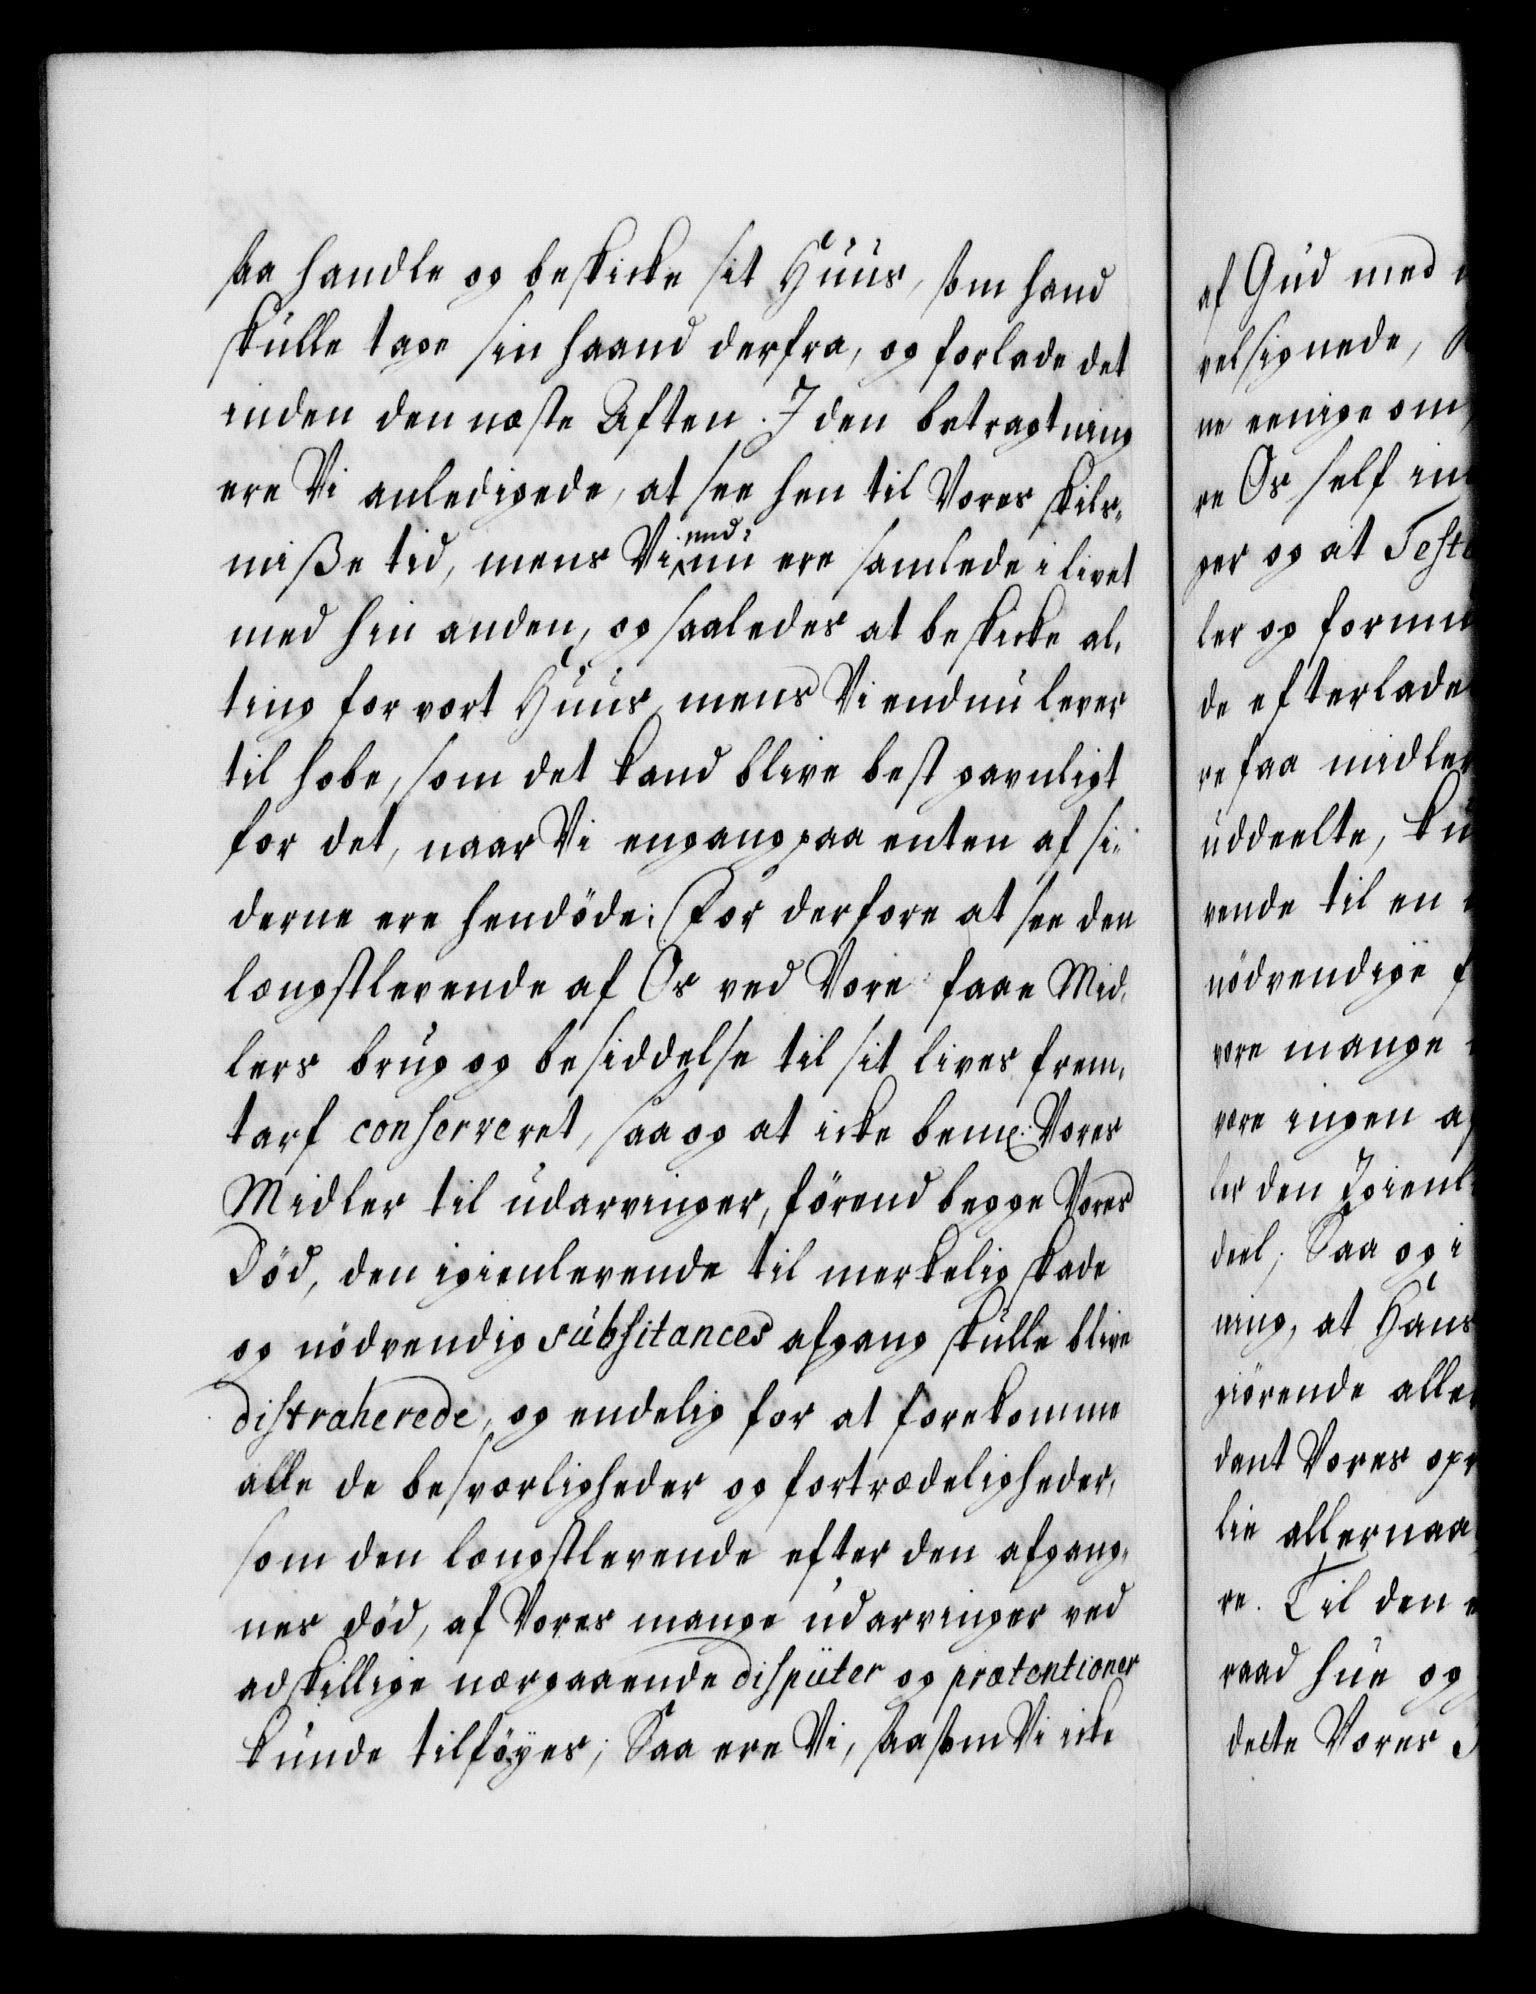 saa handle og beskicke sit Huus, som hand
skulle tage sin haand derfra, og forlade det
inden den næste Aften. I den betragtning
ere Vi anledigede, at see hen til Vores skils-
misse tid, mens Vi end-nu ere samlede i livet
med hin anden, og saaledes at beskicke al-
ting for vort Huus, mens Vi endnu lever
til hobe, som det kand blive best gavnligt
for det, naar Vi engang paa enten af si-
derne ere hendöde; For derfore at see den
længstlevende af Os ved Vore faae Mid-
lers brug og besiddelse til sit lives frem-
tarf conserveret, saa og at icke bem: Vores
Midler til udarvinger, förend begge Vores
Död, den igienlevende til merkelig skade
og nödvendig subsitances afgang skulle blive
distraherede, og endelig for at forekomme
alle de besværligheder og fortrædeligheder,
som den længstlevende efter den afgang-
nes död, af Vores mange udarvinger ved
adskillige nærgaaende disputer og prætentioner
kunde tilföyes; Saa ere Vi, saasom Vi icke
af Gud med
velsignede,
ne eenige om,
re Os self in
ger og at Test
ler og formu
de efterlade
re faa midler
uddeelte, ku
vende til en
nödvendige f
vore mange
være ingen a
ler den Igienl
deel; Saa og i
ning, at Hans
giörende alle
dant Vores opr
lie allernaa
re. Til den
raad hue og
dette Vores